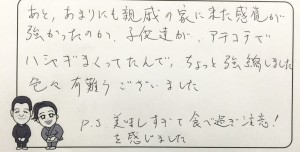 あと、あまりにも親戚の家に来た感覚が
強かったのか、子供達が、アチコチで
ハシャぎまくってたんで、ちょっと強縮しました
色々有難うございました
P.S 美味しすぎて食べ過ぎ注意!
を感じました